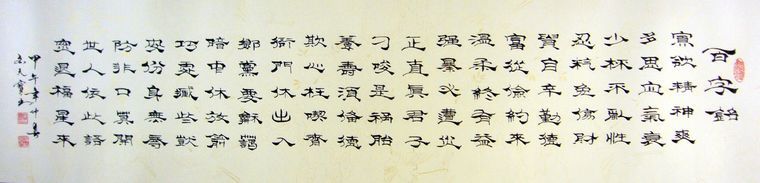 百字銘
寡欲精神爽
多思血氣衰
少杯不亂性
忍耗免傷財
貴自辛勤得
富從儉約來
溫柔終有益
强暴必遭災
正直真君子
刁唆是禍胎
養壽須修德
欺心枉喫齋
衙門休出入
鄉黨要龢諧
暗中休放箭
巧處藏些獃
安份身無辱
防非口莫開
世人依此語
災退福星來
甲午年